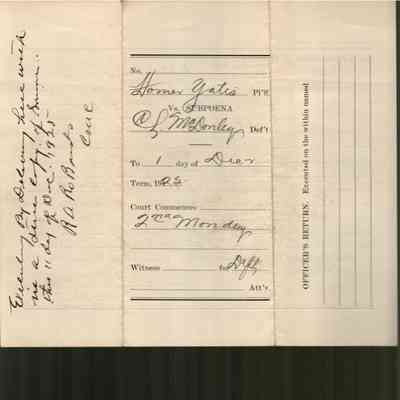 No.
Homer Yates Pl'ff.
Vs. SUBPOENA
McDonley Def't
To 1 day of
Term, 192
Court Commences
2nd Monday
Witness for Deft
Att'y.
OFFICER'S RETURN. Executed on the within named
Executed By Delivering here with
in a true copy of
this 11 day of Dec 1925